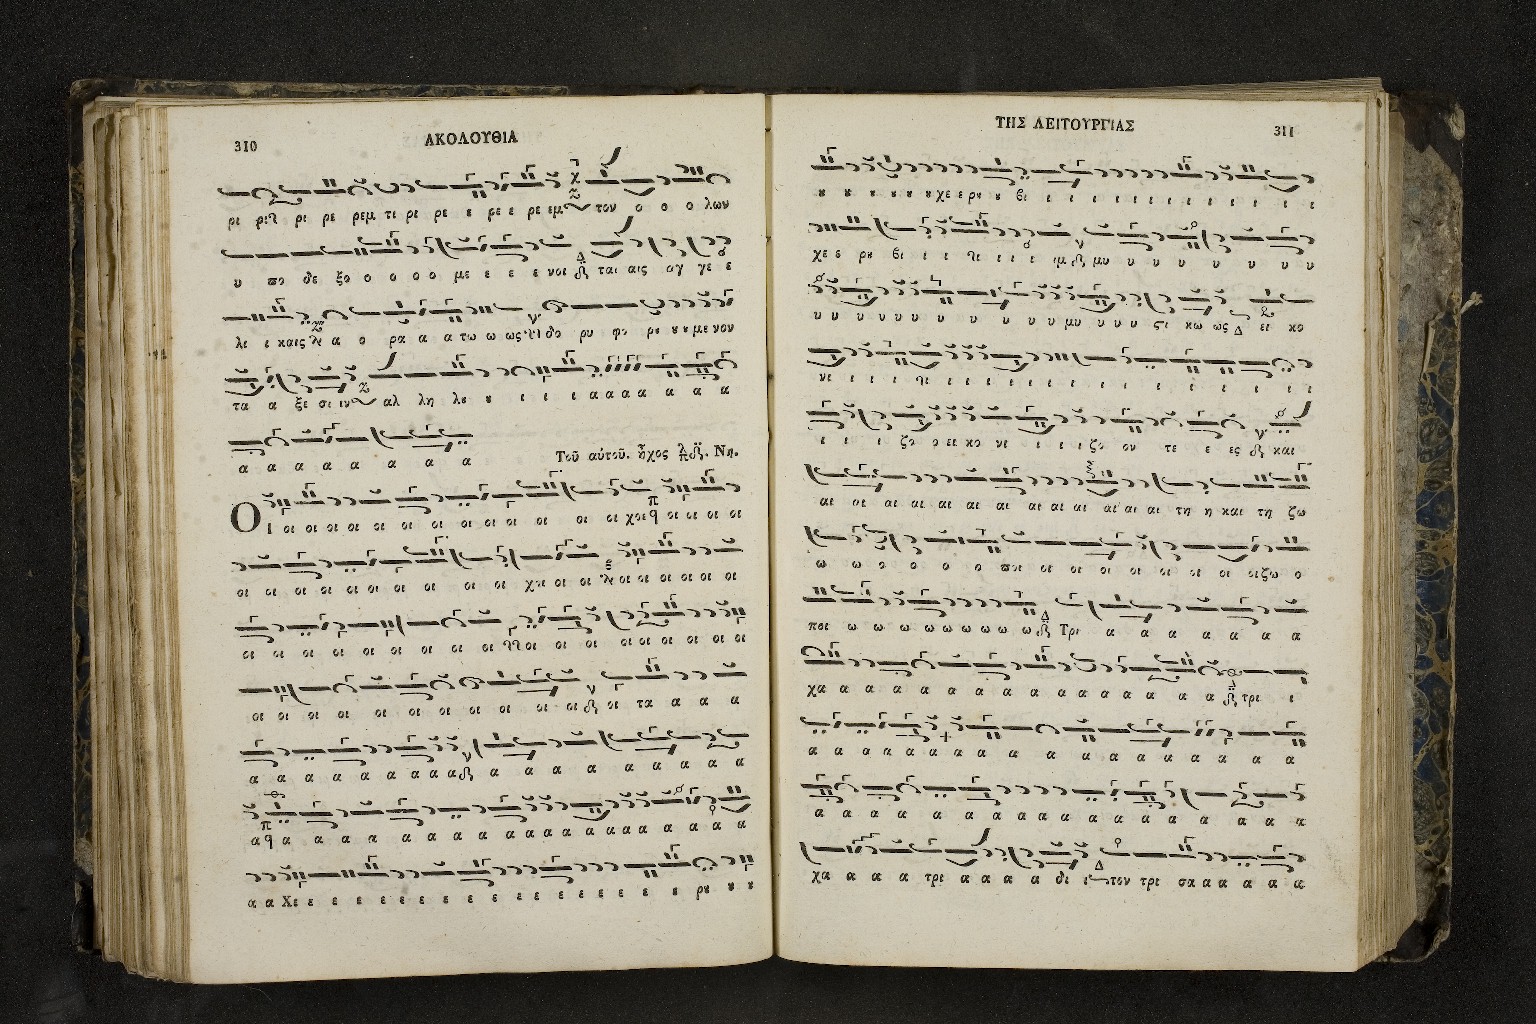 310 ΑΚΟΛΟΥΘΙΑ
ρι ριζ ρι ρε ρεμ τι ρι ρε ε ρε ε ρε εμ τον ο ο ο λων
υ πο δε ξο ο ο ο ο με ε ε ε νοι ται αις αγ γε ε
λι ι καις α ο ρα α α τω ω ως δο ρυ φο ρυ υ υ με νον
τα α ξε σι ιν αλ λη λυ υ ι ι ι α α α α α α α
α α α α α α α α
Τοῦ αὐτοῦ. ἦχος Νη.
Οι οι οι οι οι οι οι οι οι οι οι οι οι οι χοι οι οι οι οι
οι οι οι οι οι οι οι οι οι χοι οι οι οι οι οι οι οι οι
οι οι οι οι οι οι οι οι οι οι οι οι οι οι οι οι οι
οι οι οι οι οι οι οι οι οι οι οι τα α α α
α α α α α α α α α α α α α α α α α α α
α α α α α α α α α α α α α α α α α α α α
α α Χε ε ε ε ε ε ε ε ε ε ε ε ε ε ε ε ε υ ρυ υ υ
ΤΗΣ ΛΕΙΤΟΥΡΓΙΑΣ 311
υ υ υ υ υ υ χε ε ρυ υ βι ι ι ι ι ι ι ι ι ι ι ι ι ι
χε ε ρυ βι ι ι ι ι ι ι ιμ μυ υ υ υ υ υ υ υ
υ υ υ υ υ υ υ υ υ υ υ μυ υ υ υ ςι κω ως ει κο
νι ι ι ι ι ι ι ι ι ι ι ι ι ι ι ι ι ι
ι ι ι ζο ο ει κο νι ι ι ι ζο ον τε ε ες και
αι αι αι αι αι αι αι αι αι αι αι αι αι τη η και τη ζω
ω ω ο ο ο ο ποι οι οι οι οι οι οι οι οι οι ζω ο
ποι ω ω ω ω ω ω ω ω ω Τρι α α α α α α α
χα α α α α α α α α α α α α α α α α τρι ι
α α α α α α α α α α α α α α α α α α
α α α α α α α α α α α α α α α α α
χα α α α τρι α α α α δι ι τον τρι σα α α α α α